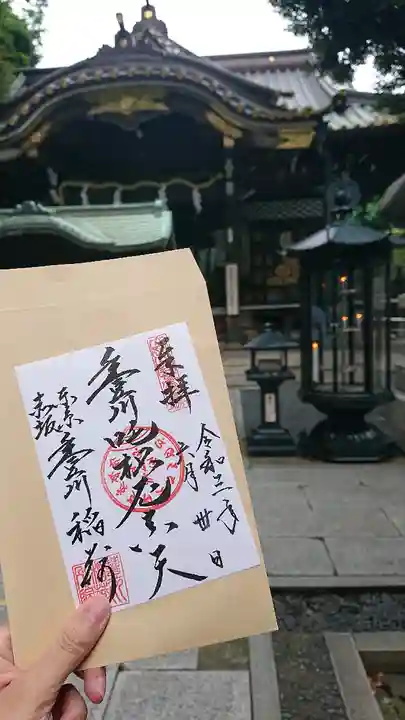 奉拝
令和三年
六月卅日
豊川吒枳尼真天
東京
赤坂 豊川稲荷